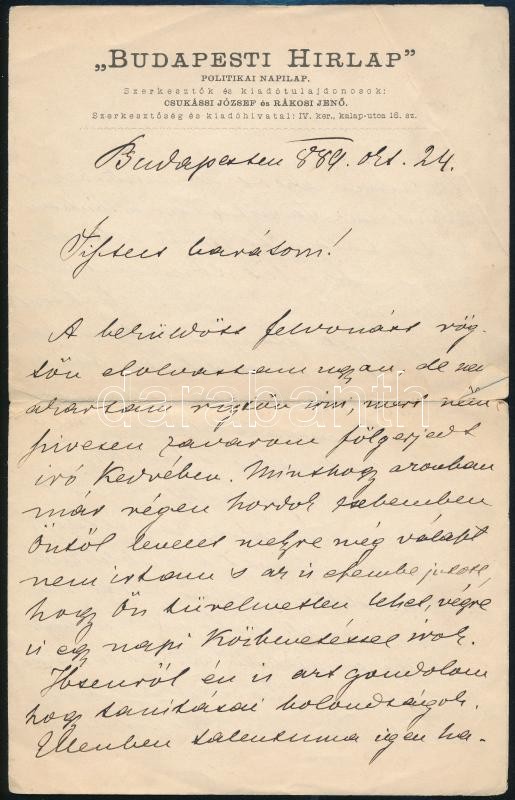 „BUDAPESTI HIRLAP”
POLITIKAI NAPILAP.
Szerkesztők és kiadótulajdonosok:
CSUKÁSSI JÓZSEF és RÁKOSI JENŐ.
Szerkesztőség és kiadóhivatal: IV. ker., kalap-utca 16. sz.
Budapesten 889. okt. 24.
Tisztelt barátom!
A beküldött felvonást rög-
tön elolvastam ugyan, de nem
akartam rögtön írni, mert nem
szivesen zavarom fölgerjedt
író kedvében. Minthogy azonban
már régen hordok zsebemben
Öntől levelet melyre még választ
nem irtam s az is eszembe jutott
hogy Ön türelmetlen lehet, végre
is egy napi közbevetéssel írok.
Ibsenről én is azt gondolom
hogy tanításai bolondságok.
Ellenben talentuma igen ha-
darabanth